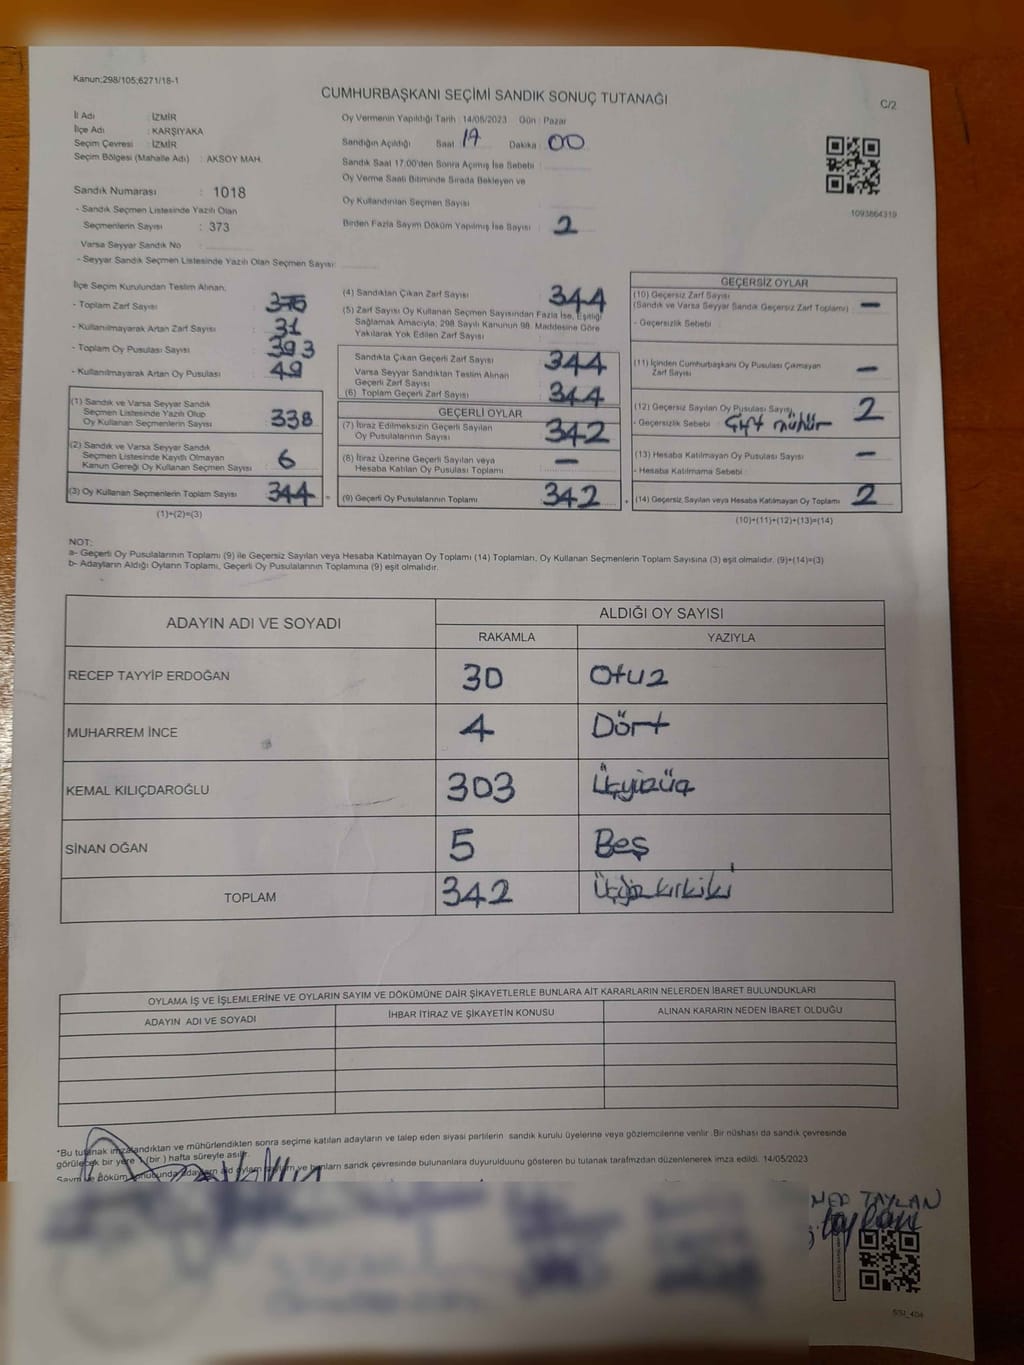 Kanun;298/105;6271/18-1
CUMHURBAŞKANI SEÇİMİ SANDIK SONUÇ TUTANAĞI
C/2
İl Adı : İZMİR
İlçe Adı : KARŞIYAKA
Seçim Çevresi : İZMİR
Seçim Bölgesi (Mahalle Adı) : AKSOY MAH.
Sandık Numarası : 1018
- Sandık Seçmen Listesinde Yazılı Olan
Seçmenlerin Sayısı : 373
Varsa Seyyar Sandık No :
- Seyyar Sandık Seçmen Listesinde Yazılı Olan Seçmen Sayısı:
Oy Vermenin Yapıldığı Tarih : 14/05/2023 Gün : Pazar
Sandığın Açıldığı Saat 17 Dakika : 00
Sandık Saat 17:00'den Sonra Açımış İse Sebebi :
Oy Verme Saati Bitiminde Sırada Bekleyen ve
Oy Kullandırılan Seçmen Sayısı
Birden Fazla Sayım Döküm Yapılmış İse Sayısı : 2
1093864319
İlçe Seçim Kurulundan Teslim Alınan;
- Toplam Zarf Sayısı : 375
- Kullanılmayarak Artan Zarf Sayısı : 31
- Toplam Oy Pusulası Sayısı : 393
- Kullanılmayarak Artan Oy Pusulası : 49
(1) Sandık ve Varsa Seyyar Sandık
Seçmen Listesinde Yazılı Olup
Oy Kullanan Seçmenlerin Sayısı : 338
(2) Sandık ve Varsa Seyyar Sandık
Seçmen Listesinde Kayıtlı Olmayan
Kanun Gereği Oy Kullanan Seçmen Sayısı : 6
(3) Oy Kullanan Seçmenlerin Toplam Sayısı : 344 =
(1)+(2)=(3)
(4) Sandıktan Çıkan Zarf Sayısı : 344
(5) Zarf Sayısı Oy Kullanan Seçmen Sayısından Fazla İse, Eşitliği
Sağlamak Amacıyla; 298 Sayılı Kanunun 98. Maddesine Göre
Yakılarak Yok Edilen Zarf Sayısı :
Sandıkta Çıkan Geçerli Zarf Sayısı : 344
Varsa Seyyar Sandıktan Teslim Alınan
Geçerli Zarf Sayısı
(6) Toplam Geçerli Zarf Sayısı : 344
GEÇERLİ OYLAR
(7) İtiraz Edilmeksizin Geçerli Sayılan
Oy Pusulalarının Sayısı : 342
(8) İtiraz Üzerine Geçerli Sayılan veya
Hesaba Katılan Oy Pusulası Toplamı : —
(9) Geçerli Oy Pusulalarının Toplamı : 342 +
GEÇERSİZ OYLAR
(10) Geçersiz Zarf Sayısı
(Sandık ve Varsa Seyyar Sandık Geçersiz Zarf Toplamı) : —
- Geçersizlik Sebebi :
(11) İçinden Cumhurbaşkanı Oy Pusulası Çıkmayan
Zarf Sayısı : —
(12) Geçersiz Sayılan Oy Pusulası Sayısı : 2
- Geçersizlik Sebebi : Çift mühür
(13) Hesaba Katılmayan Oy Pusulası Sayısı : —
- Hesaba Katılmama Sebebi :
(14) Geçersiz Sayılan veya Hesaba Katılmayan Oy Toplamı : 2
(10)+(11)+(12)+(13)=(14)
NOT:
a- Geçerli Oy Pusulalarının Toplamı (9) ile Geçersiz Sayılan veya Hesaba Katılmayan Oy Toplamı (14) Toplamları, Oy Kullanan Seçmenlerin Toplam Sayısına (3) eşit olmalıdır. (9)+(14)=(3)
b- Adayların Aldığı Oyların Toplamı, Geçerli Oy Pusulalarının Toplamına (9) eşit olmalıdır.
ADAYIN ADI VE SOYADI
ALDIĞI OY SAYISI
RAKAMLA YAZIYLA
RECEP TAYYİP ERDOĞAN 30 Otuz
MUHARREM İNCE 4 Dört
KEMAL KILIÇDAROĞLU 303 Üçyüzüç
SİNAN OĞAN 5 Beş
TOPLAM 342 Üçyüzkırkiki
OYLAMA İŞ VE İŞLEMLERİNE VE OYLARIN SAYIM VE DÖKÜMÜNE DAİR ŞİKAYETLERLE BUNLARA AİT KARARLARIN NELERDEN İBARET BULUNDUKLARI
ADAYIN ADI VE SOYADI İHBAR İTİRAZ VE ŞİKAYETİN KONUSU ALINAN KARARIN NEDEN İBARET OLDUĞU
*Bu tutanak imzalandıktan ve mühürlendikten sonra seçime katılan adayların ve talep eden siyasi partilerin sandık kurulu üyelerine veya gözlemcilerine verilir .Bir nüshası da sandık çevresinde
görülecek bir yere 1 (bir ) hafta süreyle asılır.
ve bunların sandık çevresinde bulunanlara duyurulduunu gösteren bu tutanak tarafımzdan düzenlenerek imza edildi. 14/05/2023
TAYLAN